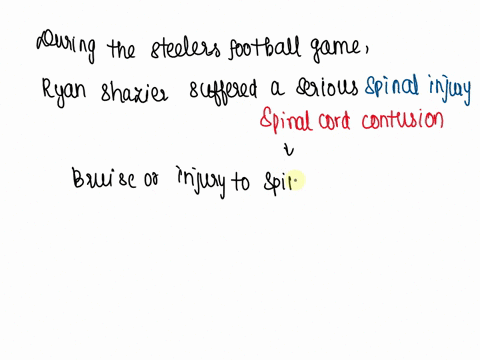 During the steelers football game,
Ryan Shazier suffered a serious spinal injury
Spinal cord contusion
↓
Bruise or injury to spi